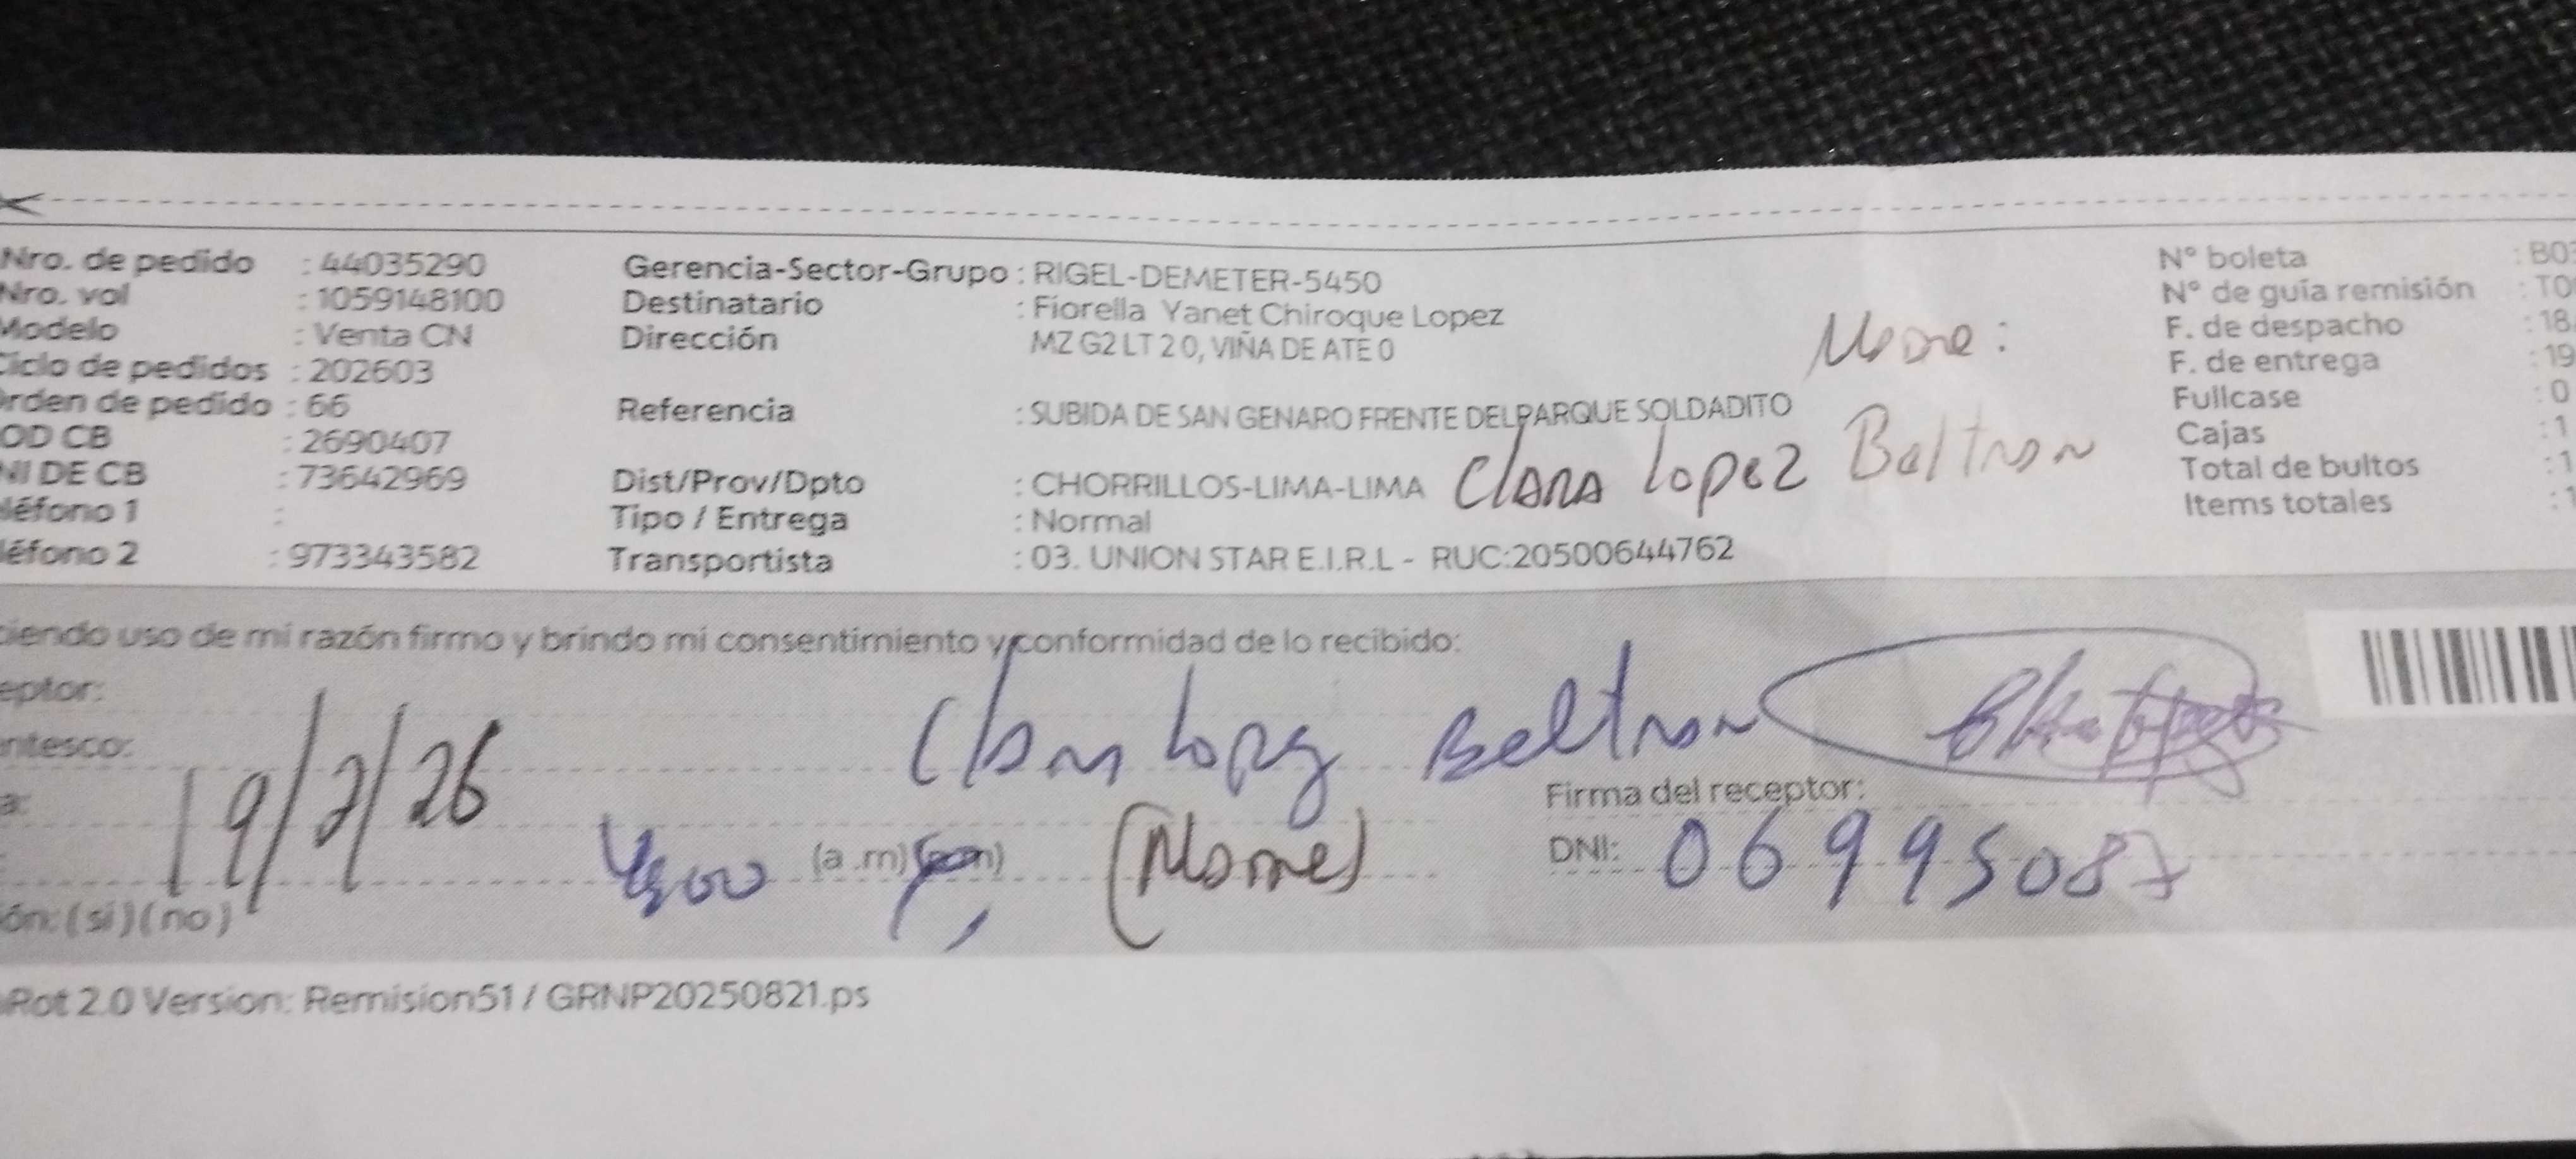 Nro. de pedido : 44035290
Nro. vol : 1059148100
Modelo : Venta CN
Ciclo de pedidos : 202603
rden de pedido : 66
OD CB : 2690407
NI DE CB : 73642969
léfono 1 :
léfono 2 : 973343582
Gerencia-Sector-Grupo : RIGEL-DEMETER-5450
Destinatario : Fiorella Yanet Chiroque Lopez
Dirección MZ G2 LT 2 0, VIÑA DE ATE 0
Referencia : SUBIDA DE SAN GENARO FRENTE DEL PARQUE SOLDADITO
Dist/Prov/Dpto : CHORRILLOS-LIMA-LIMA
Tipo / Entrega : Normal
Transportista : 03. UNION STAR E.I.R.L - RUC:20500644762
Clara Lopez Beltran
N° boleta : B0
N° de guía remisión : T0
F. de despacho : 18
F. de entrega : 19
Fullcase : 0
Cajas : 1
Total de bultos : 1
Items totales : 1
ciendo uso de mi razón firmo y brindo mi consentimiento y conformidad de lo recibido:
eptor:
Clara Lopez Beltran
ntesco:
a: 19/2/26
(a .m)
Firma del receptor:
DNI: 06995087
ón: (si) (no)
Rot 2.0 Version: Remision51 / GRNP20250821.ps